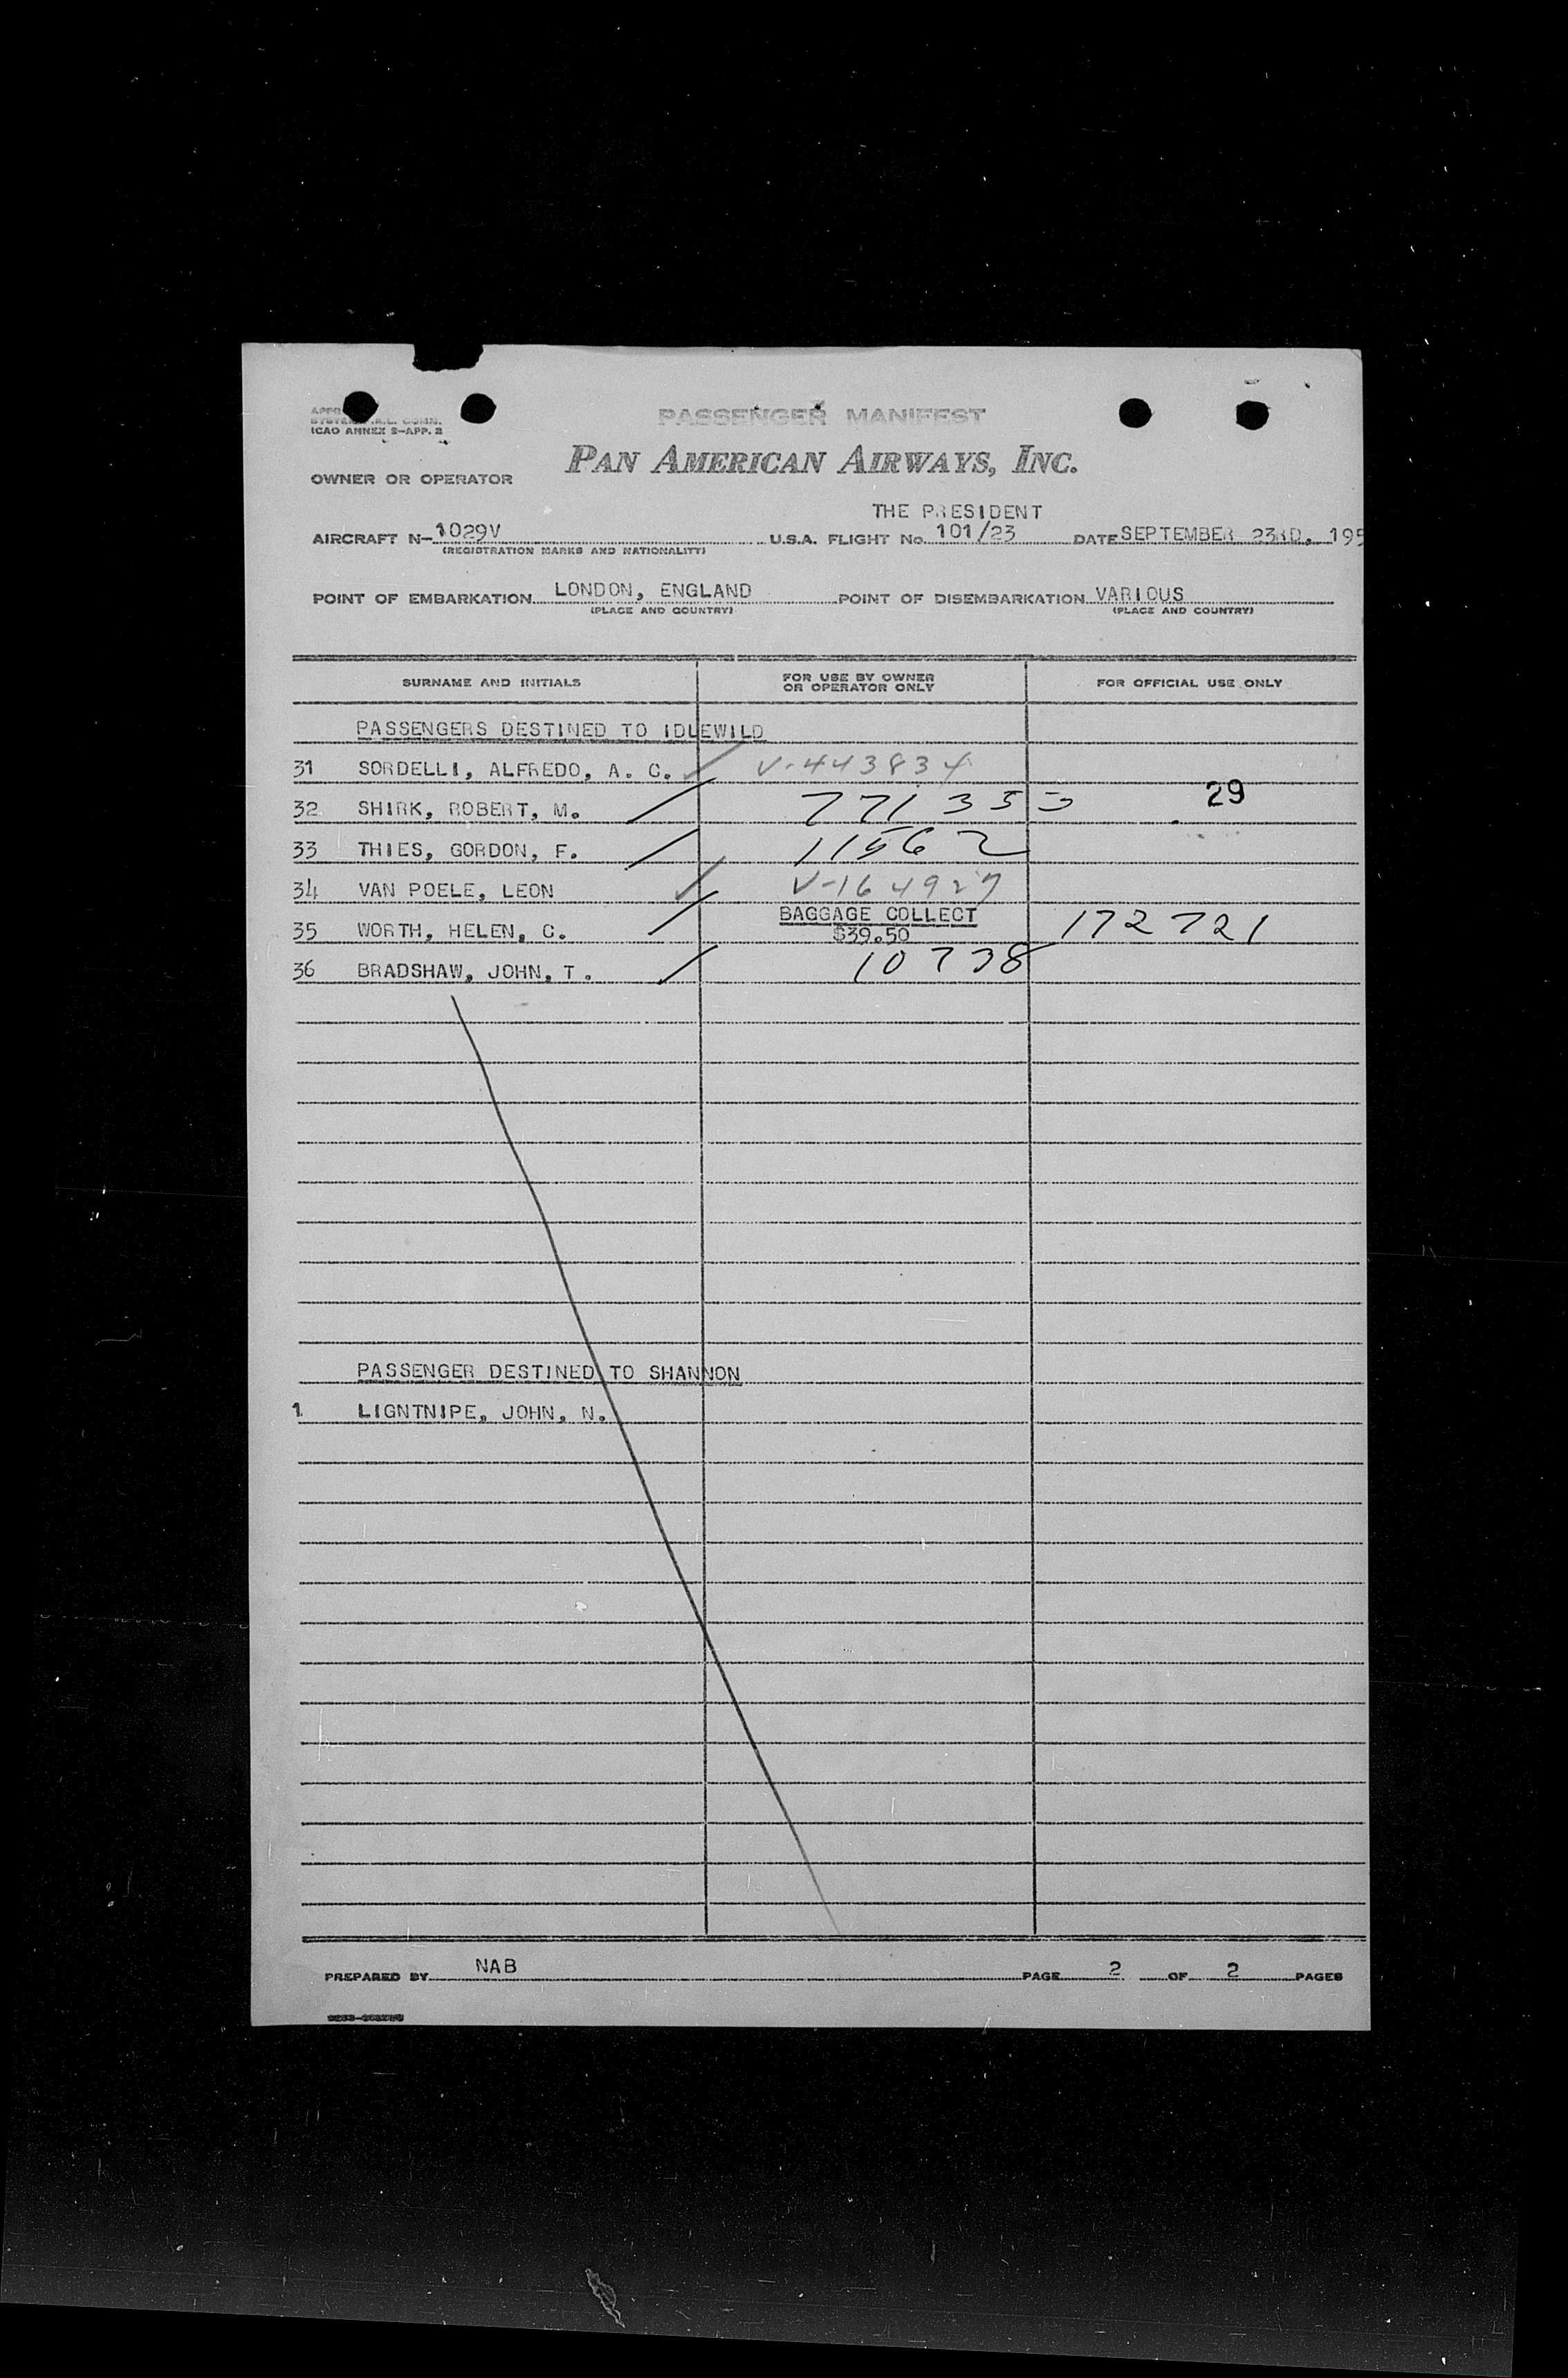 ICAO ANNEX 9-APP. 2
PASSENGER MANIFEST
PAN AMERICAN AIRWAYS, INC.
OWNER OR OPERATOR
THE PRESIDENT
AIRCRAFT N-1029V U.S.A. FLIGHT No. 101/23 DATE SEPTEMBER 23RD, 195
(REGISTRATION MARKS AND NATIONALITY)
POINT OF EMBARKATION LONDON, ENGLAND POINT OF DISEMBARKATION VARIOUS
(PLACE AND COUNTRY) (PLACE AND COUNTRY)
SURNAME AND INITIALS FOR USE BY OWNER OR OPERATOR ONLY FOR OFFICIAL USE ONLY
PASSENGERS DESTINED TO IDLEWILD
31 SORDELLI, ALFREDO, A. C. V-443834
32 SHIRK, ROBERT, M. 29
33 THIES, GORDON, F. 11562
34 VAN POELE, LEON V-164927
BAGGAGE COLLECT
35 WORTH, HELEN, C. $39.50 172721
36 BRADSHAW, JOHN, T. 10738
PASSENGER DESTINED TO SHANNON
1 LIGNTNIPE, JOHN, N.
PREPARED BY NAB PAGE 2 OF 2 PAGES